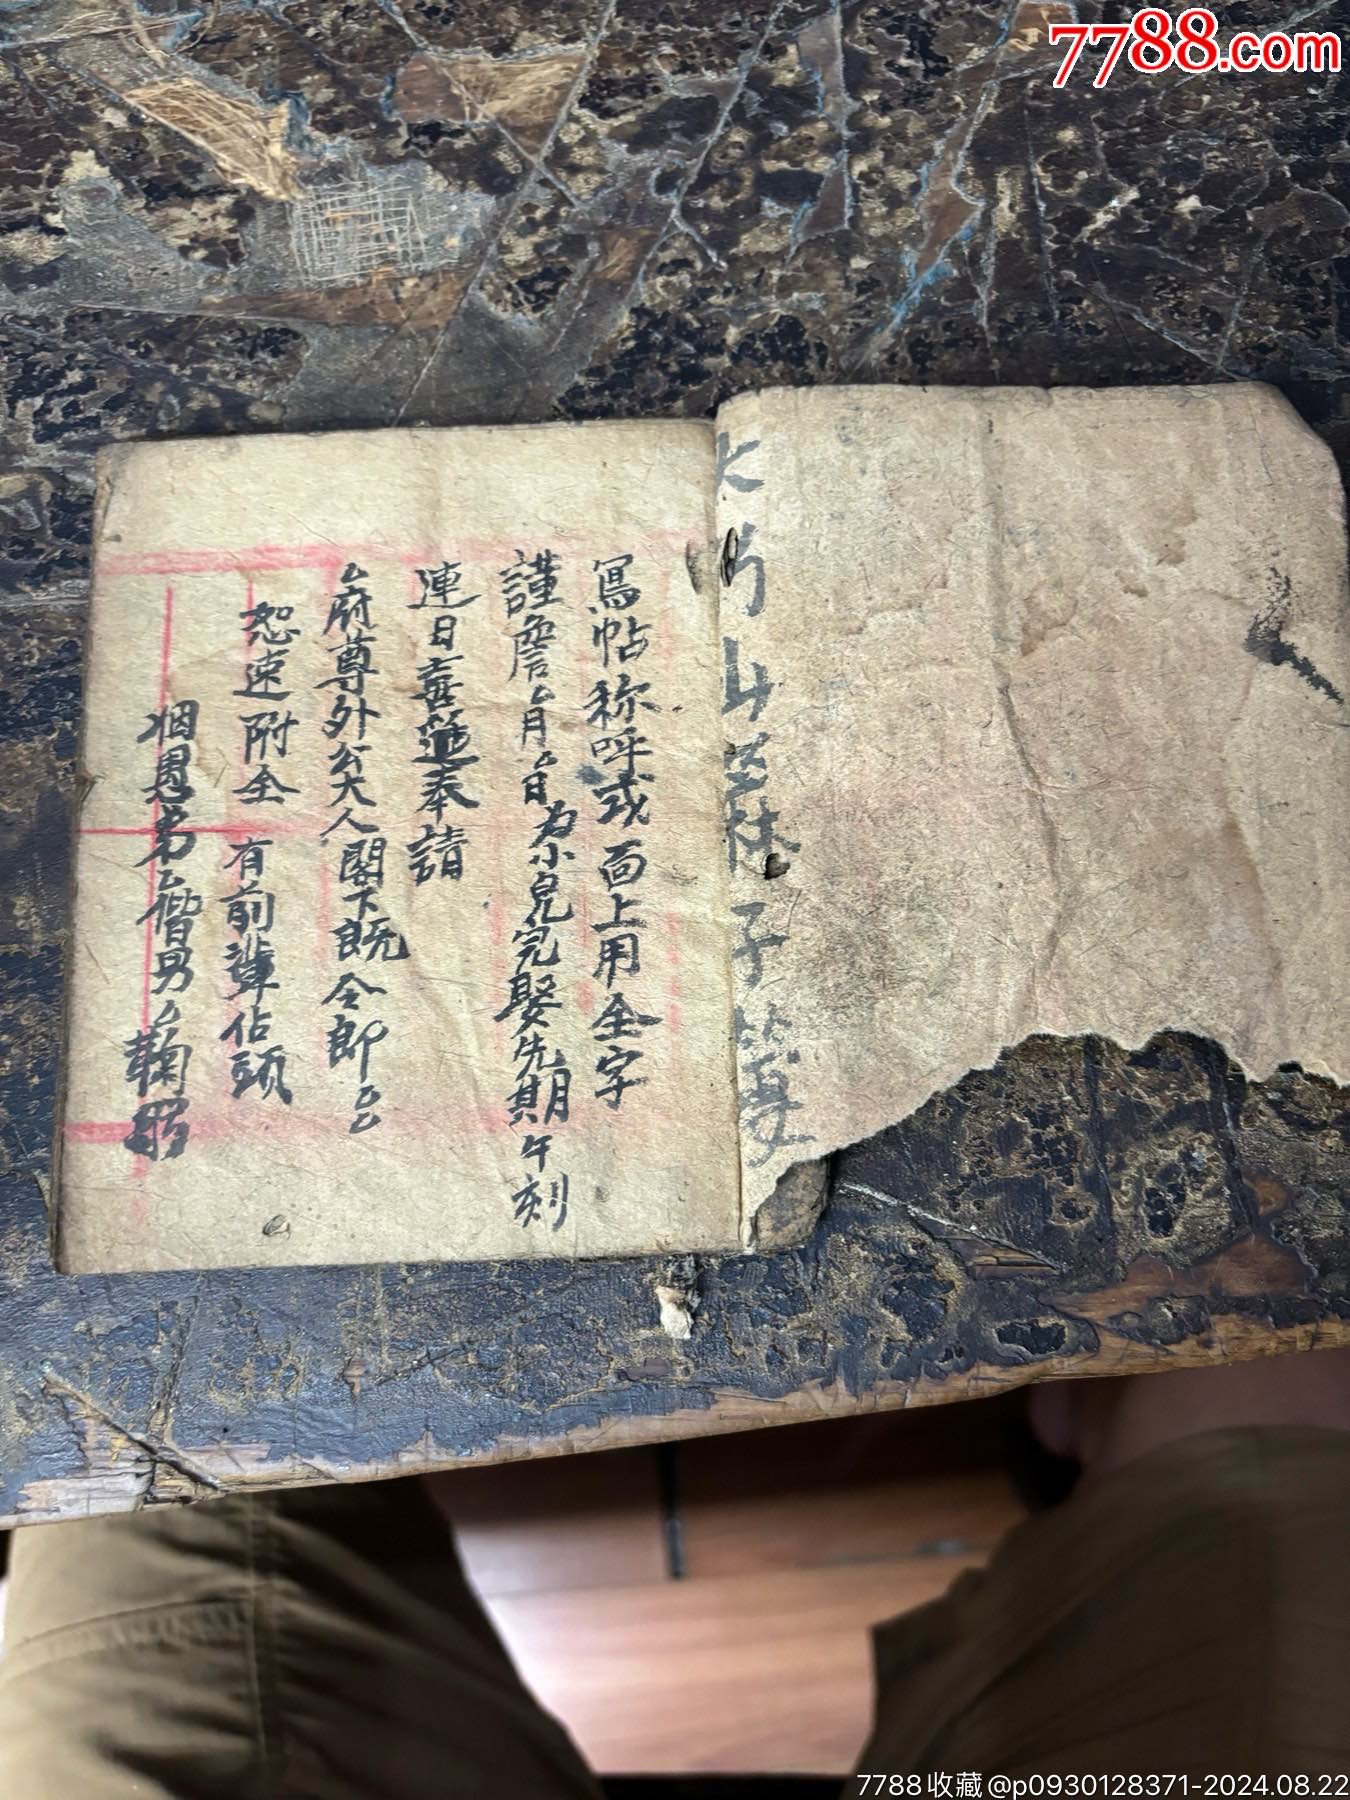 7788.com
寫帖称呼或面上用全字
謹詹厶月厶日為小兒完娶先期午刻
連日喜筵奉請
厶府尊外公大人閣下既令郎厶厶
恕速附全 有前輩佔頭
姻愚弟厶僭男厶鞠躬
7788收藏@p0930128371-2024.08.22